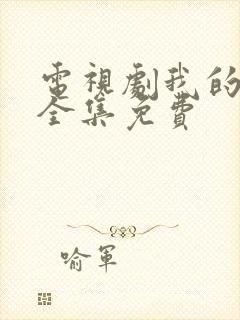 電視劇我的
全集免費
喻軍